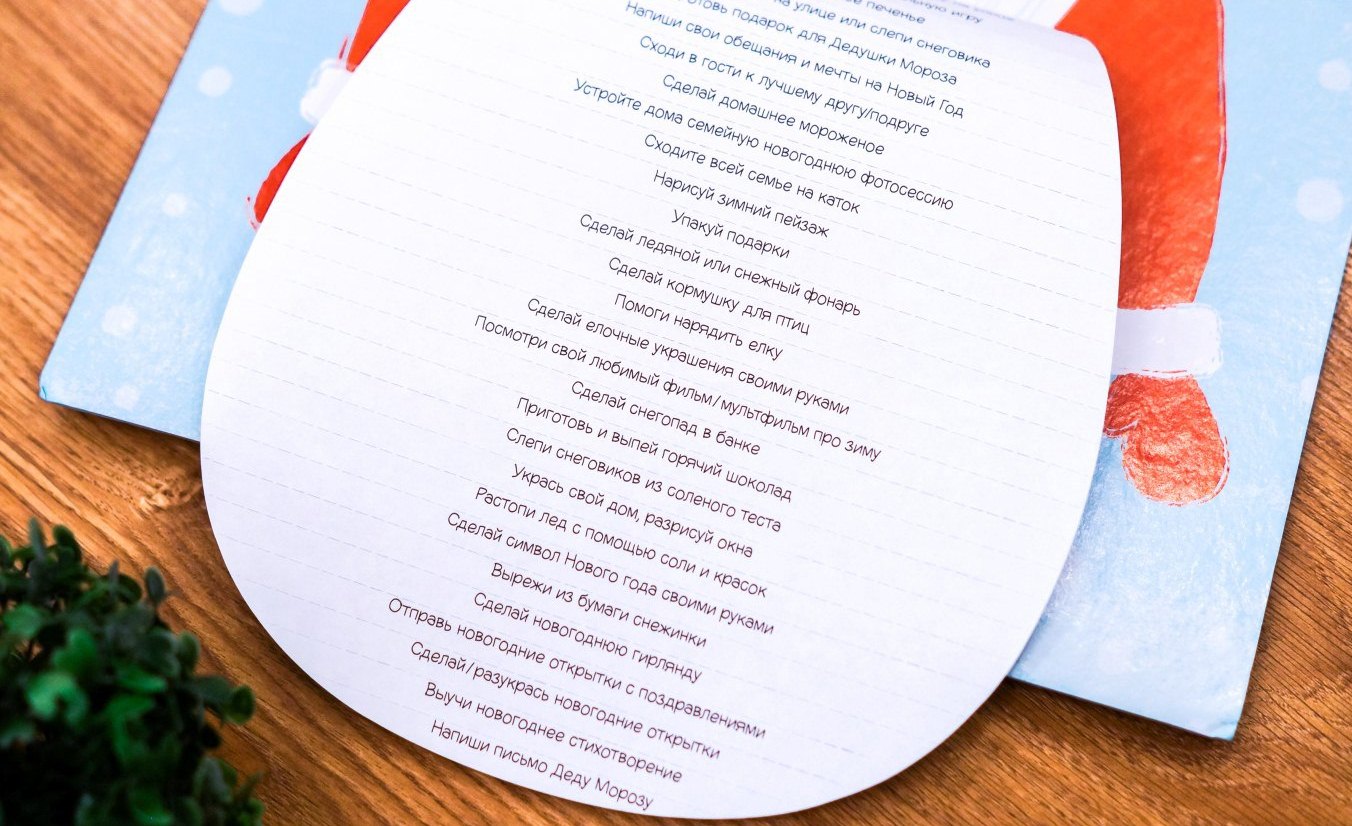 печенье
на улице или слепи снеговика
подарок для Дедушки Мороза
Напиши свои обещания и мечты на Новый Год
Сходи в гости к лучшему другу/подруге
Сделай домашнее мороженое
Устройте дома семейную новогоднюю фотосессию
Сходите всей семье на каток
Нарисуй зимний пейзаж
Упакуй подарки
Сделай ледяной или снежный фонарь
Сделай кормушку для птиц
Помоги нарядить елку
Сделай елочные украшения своими руками
Посмотри свой любимый фильм/мультфильм про зиму
Сделай снегопад в банке
Приготовь и выпей горячий шоколад
Слепи снеговиков из соленого теста
Укрась свой дом, разрисуй окна
Растопи лед с помощью соли и красок
Сделай символ Нового года своими руками
Вырежи из бумаги снежинки
Сделай новогоднюю гирлянду
Отправь новогодние открытки с поздравлениями
Сделай/разукрась новогодние открытки
Выучи новогоднее стихотворение
Напиши письмо Деду Морозу